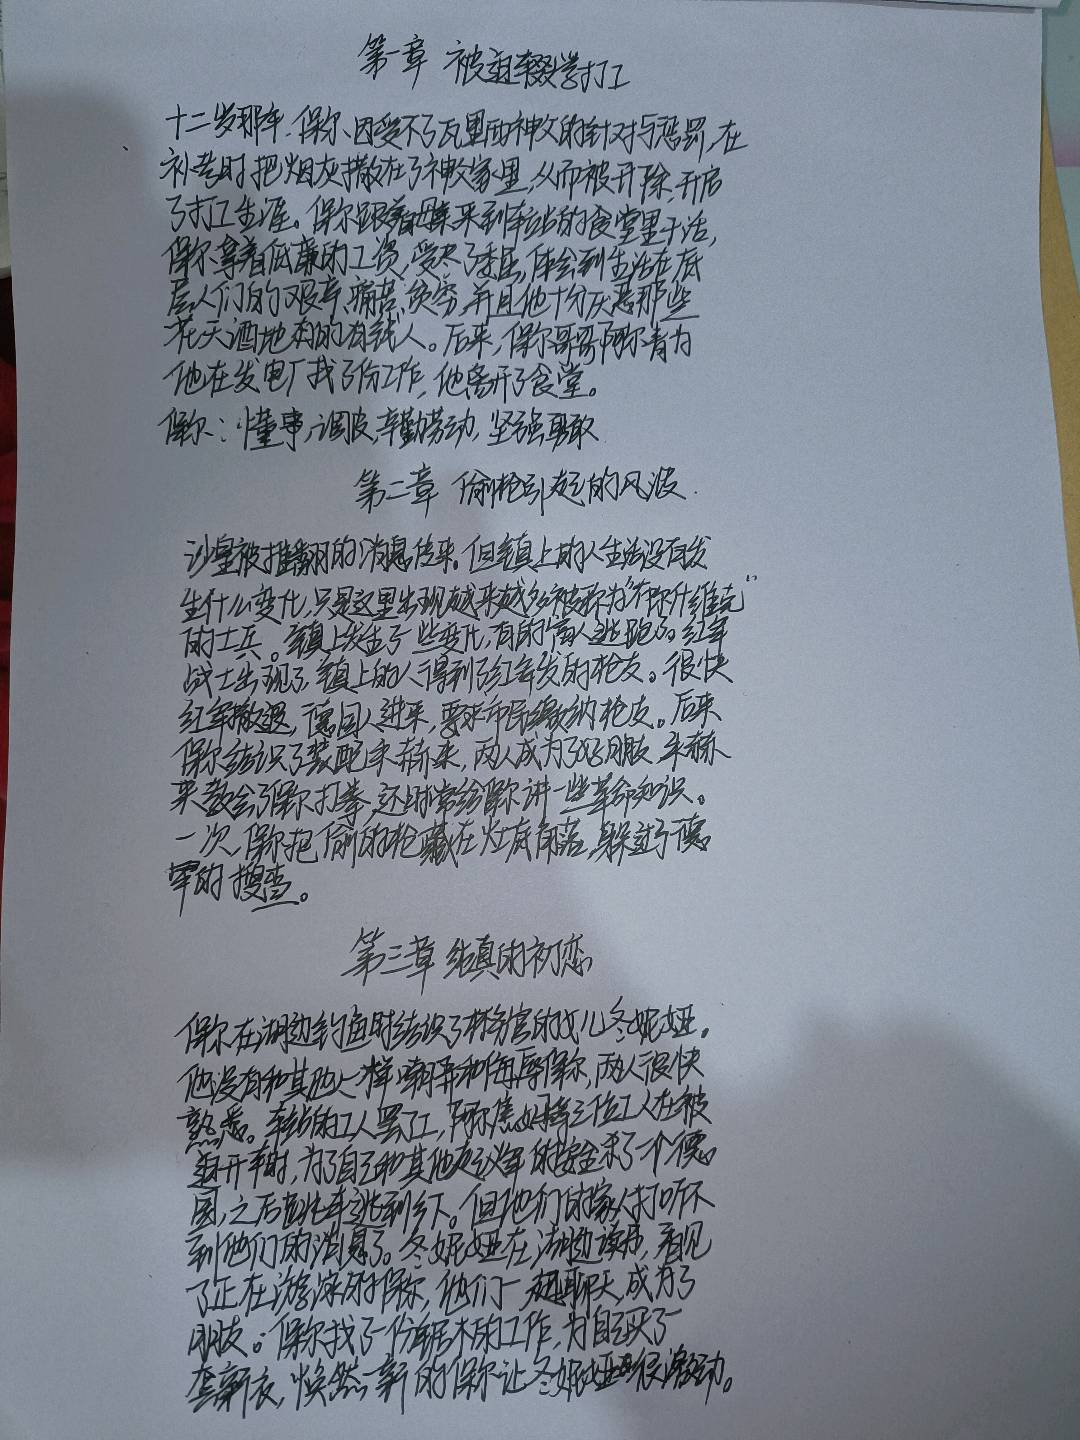 第一章 被迫辍学打工
十二岁那年,保尔因受不了瓦里西神父的针对与惩罚,在
补考时把烟灰撒在了神父家里,从而被开除,开启
了打工生涯。保尔跟着母亲来到车站的食堂里干活,
保尔拿着低廉的工资,受尽了委屈,体会到生活在底
层人们的艰辛、痛苦、贫穷,并且他十分厌恶那些
花天酒地的有钱人。后来,保尔哥哥阿尔青为
他在发电厂找了份工作,他离开了食堂。
保尔:懂事,调皮,辛勤劳动,坚强勇敢
第二章 偷枪引起的风波
沙皇被推翻的消息传来。但镇上的人生活没有发
生什么变化,只是这里出现越来越多被称为“布尔什维克”
的士兵。镇上发生了一些变化,有的富人逃跑了。红军
战士出现了,镇上的人得到了红军发的枪支。很快
红军撤退,德国人进来,要求市民缴纳枪支。后来
保尔结识了装配朱赫来,两人成为了好朋友,朱赫
来教会了保尔打拳,还时常给保尔讲一些革命知识。
一次,保尔把偷的枪藏在灶底角落,躲过了德
军的搜查。
第三章 纯真的初恋
保尔在湖边钓鱼时结识了林务官的女儿冬妮娅。
他没有和其他人一样嘲弄和侮辱保尔,两人很快
熟悉。车站的工人罢了工,阿尔焦姆等三位工人在被
迫开车时,为了自己和其他起义军的安全杀了一个德
国,之后跳车逃到乡下。但他们的家人打听不
到他们的消息了。冬妮娅在湖边读书,看见
了正在游泳的保尔,他们一起聊天,成为了
朋友。保尔找了一份锯木的工作,为自己买了一
套新衣,焕然一新的保尔让冬妮娅很激动。